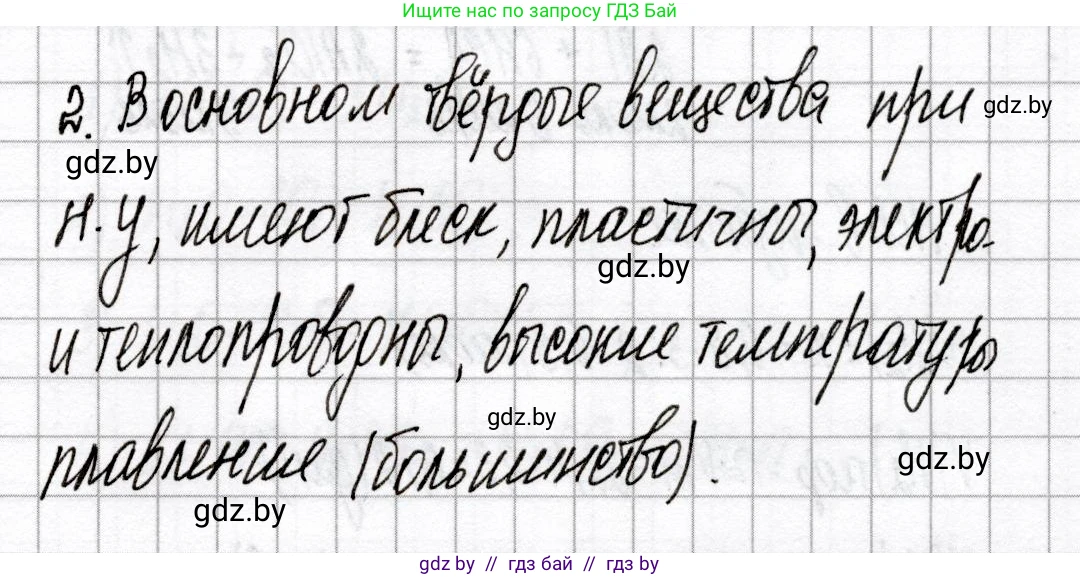 Ищите нас по запросу ГДЗ Бай
2. В основном твёрдые вещества при gdz.by
gdz.by
н.у, имеют блеск, пластичны, электро-
gdz.by
и теплопроводны, высокие температуры
gdz.by
плавление (большинство).
gdz.by
gdz.by
gdz.by // гдз бай // гдз by